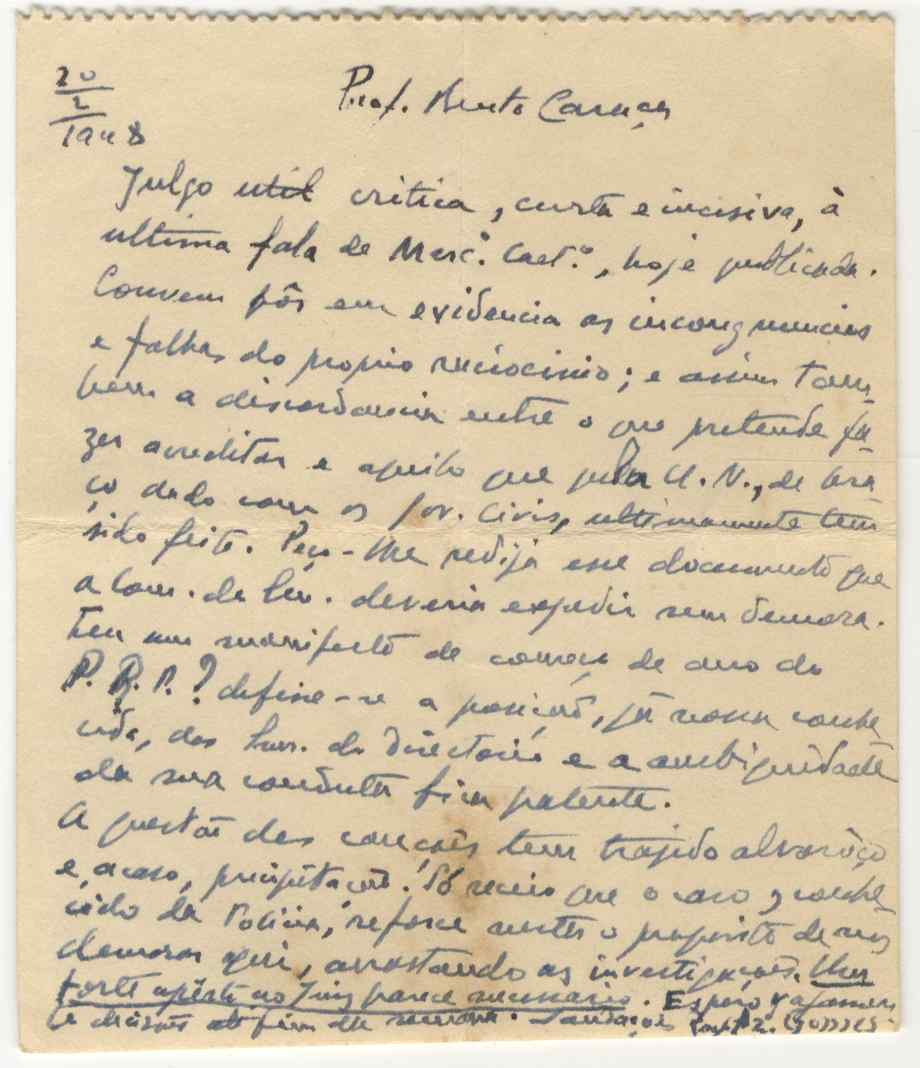 20
2
1948
Prof. Bento Caraça
Julgo util critica, curta e incisiva, à
ultima fala de Marc.º Caet.º, hoje publicada.
Convem pôr em evidencia as incongruencias
e falhas do proprio raciocinio; e assim tam-
bem a discordancia entre o que pretende fa-
zer acreditar e aquilo que pela U. N., de bra-
ço dado com os Gov. Civis, ultimamente tem
sido feito. Peço-lhe redija esse documento que
a Com. de deveria expedir sem demora.
Leu um manifesto de começo de ano do
P. R. P.? define-se a posição, já nossa conhe
cida, dos hom. do Directorio e a ambiguidade
da sua conduta fica patente.
A questão das cauções tem trazido alvoroço
e, acaso, precipitação! Só receio que o caso, conhe-
cido da Policia, reforce nesta o proposito de nos
demorar aqui, arrastando as investigações. Um
forte apêrto ao Juiz parece necessario. Espero vajamos
a decisão até fim da semana. Saudações